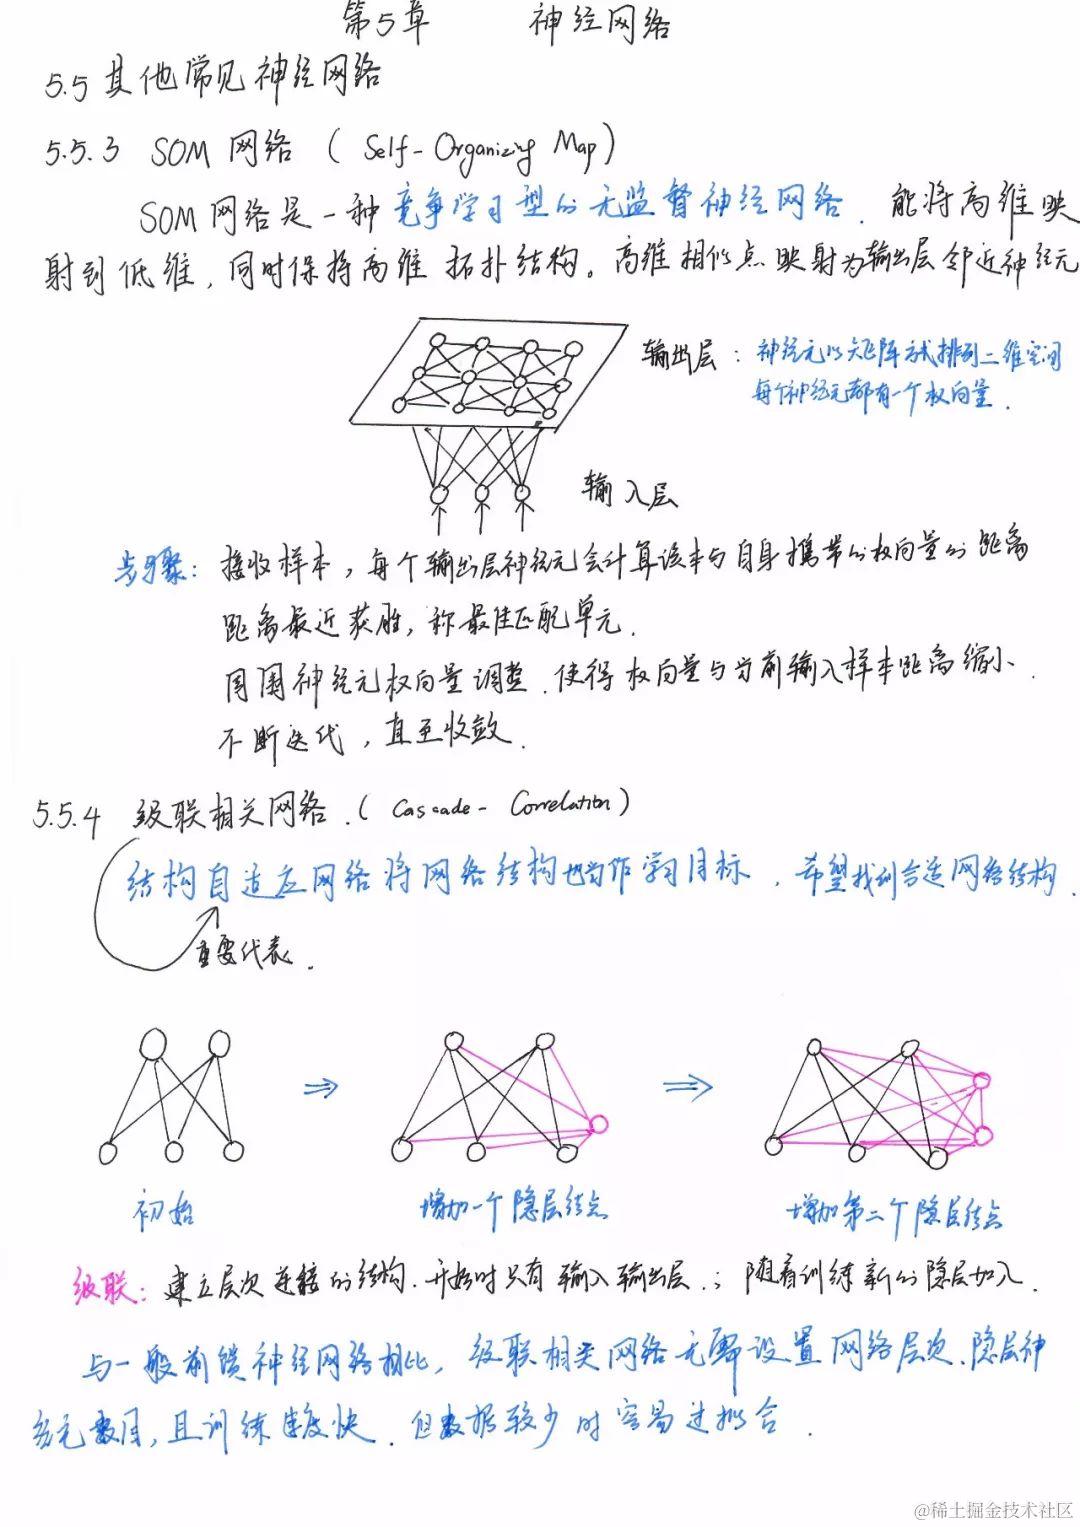 第5章 神经网络
5.5 其他常见神经网络
5.5.3 SOM 网络 ( Self-Organizing Map)
SOM 网络是一种竞争学习型的无监督神经网络. 能将高维映
射到低维, 同时保持高维拓扑结构。高维相似点映射为输出层邻近神经元
输出层: 神经元以矩阵方式排列二维空间
每个神经元都有一个权向量.
输入层
步骤: 接收样本, 每个输出层神经元会计算该本与自身携带的权向量的距离
距离最近获胜, 称最佳匹配单元.
周围神经元权向量调整. 使得权向量与当前输入样本距离缩小.
不断迭代, 直至收敛.
5.5.4 级联相关网络.( Cascade-Correlation)
结构自适应网络将网络结构也当作学习目标, 希望找到合适网络结构.
重要代表.
初始
增加一个隐层结点
增加第二个隐层结点
级联: 建立层次连接的结构. 开始时只有输入输出层.; 随着训练新的隐层加入.
与一般前馈神经网络相比, 级联相关网络无需设置网络层次、隐层神
经元数目, 且训练速度快. 但数据较少时容易过拟合.
@稀土掘金技术社区